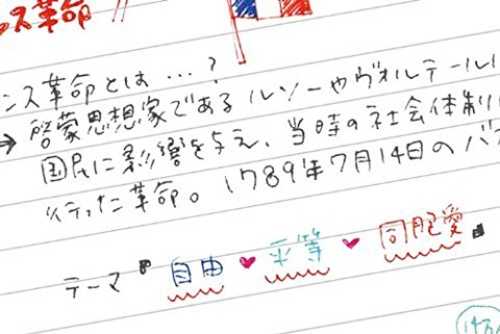 ス革命
ンス革命とは…?
→ 啓蒙思想家であるルソーやヴォルテール
国民に影響を与え、当時の社会体制
行った革命。1789年7月14日のバ
テーマ" 自由♥平等♥同胞愛"